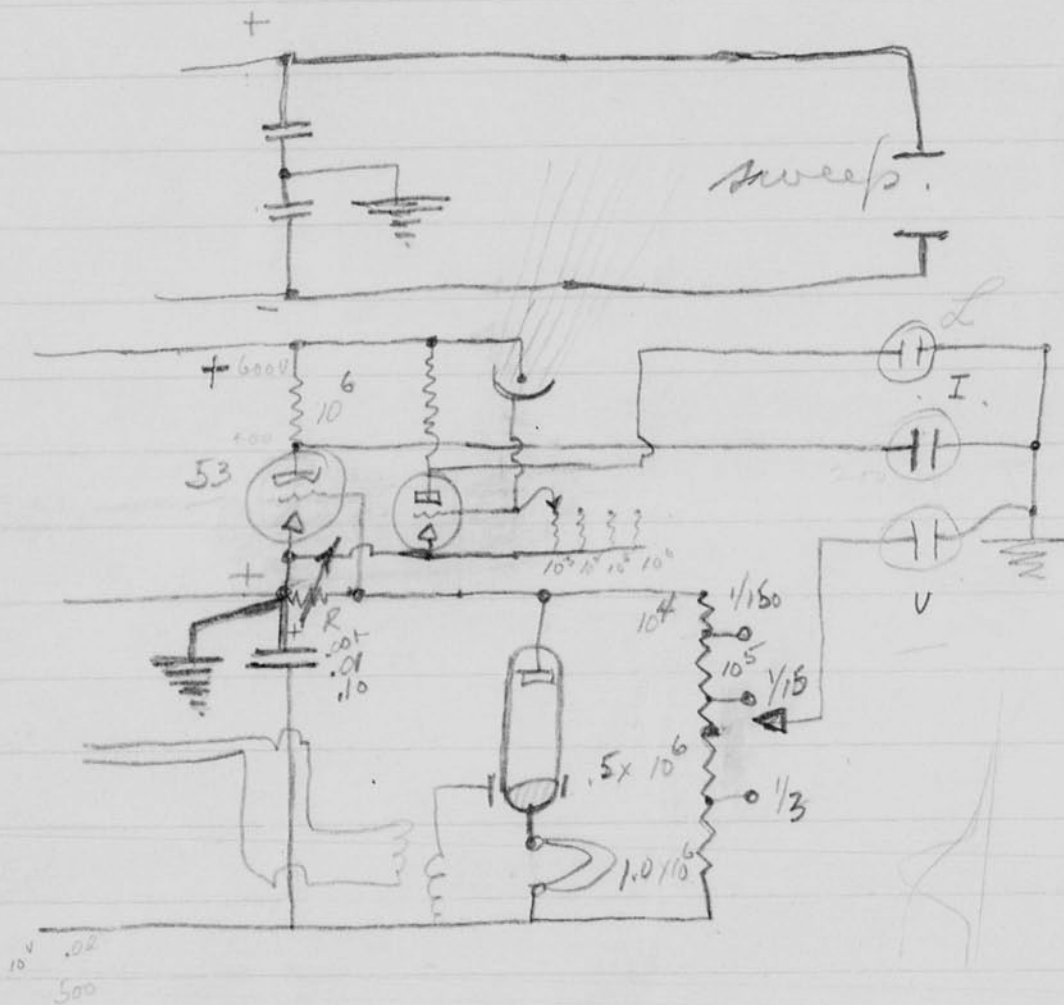 +
sweep.
-
+ 600V
10⁶
L
I.
53
10³ 10⁴ 10⁵ 10⁶
+
R
+
.001
.01
.10
10⁴
1/150
10⁵
1/15
U
.5 x 10⁶
1/3
1.0 x 10⁶
10ᵛ .02
500